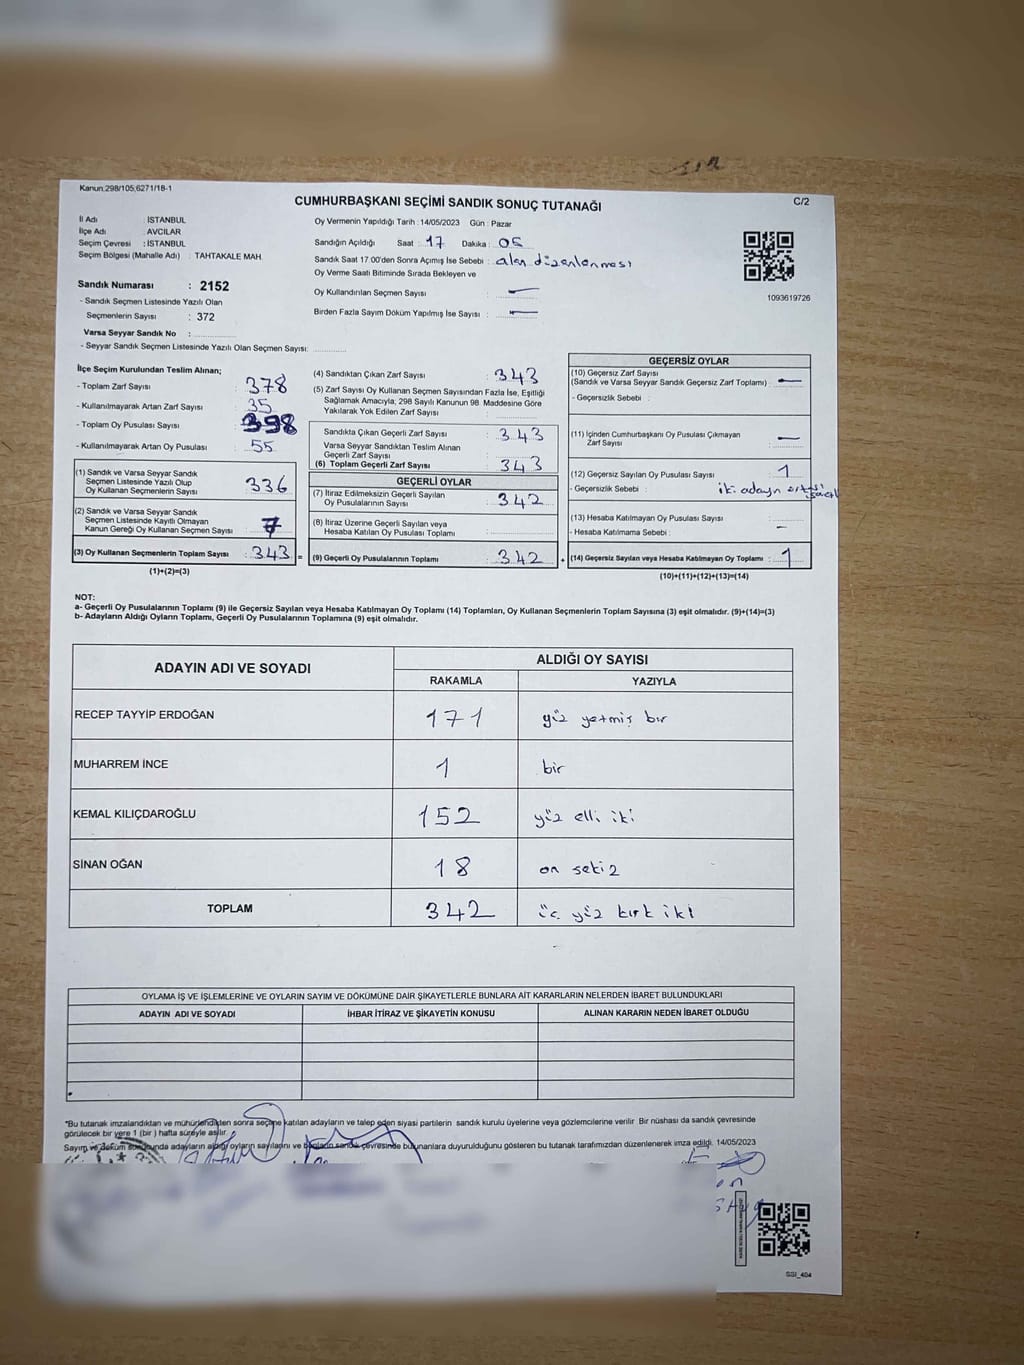 Kanun:298/105,6271/18-1
CUMHURBAŞKANI SEÇİMİ SANDIK SONUÇ TUTANAĞI
C/2
İl Adı : İSTANBUL
İlçe Adı : AVCILAR
Seçim Çevresi : İSTANBUL
Seçim Bölgesi (Mahalle Adı) : TAHTAKALE MAH.
Oy Vermenin Yapıldığı Tarih : 14/05/2023 Gün : Pazar
Sandığın Açıldığı Saat : 17 Dakika : 05
Sandık Saat 17.00'den Sonra Açımış İse Sebebi : alan düzenlenmesi
Oy Verme Saati Bitiminde Sırada Bekleyen ve
Oy Kullandırılan Seçmen Sayısı : —
Birden Fazla Sayım Döküm Yapılmış İse Sayısı : —
1093619726
Sandık Numarası : 2152
- Sandık Seçmen Listesinde Yazılı Olan
Seçmenlerin Sayısı : 372
Varsa Seyyar Sandık No :
- Seyyar Sandık Seçmen Listesinde Yazılı Olan Seçmen Sayısı:
İlçe Seçim Kurulundan Teslim Alınan;
- Toplam Zarf Sayısı : 378
- Kullanılmayarak Artan Zarf Sayısı : 35
- Toplam Oy Pusulası Sayısı : 398
- Kullanılmayarak Artan Oy Pusulası : 55
(1) Sandık ve Varsa Seyyar Sandık
Seçmen Listesinde Yazılı Olup
Oy Kullanan Seçmenlerin Sayısı : 336
(2) Sandık ve Varsa Seyyar Sandık
Seçmen Listesinde Kayıtlı Olmayan
Kanun Gereği Oy Kullanan Seçmen Sayısı : 7
(3) Oy Kullanan Seçmenlerin Toplam Sayısı : 343
(1)+(2)=(3)
(4) Sandıktan Çıkan Zarf Sayısı : 343
(5) Zarf Sayısı Oy Kullanan Seçmen Sayısından Fazla İse, Eşitliği
Sağlamak Amacıyla, 298 Sayılı Kanunun 98. Maddesine Göre
Yakılarak Yok Edilen Zarf Sayısı :
Sandıkta Çıkan Geçerli Zarf Sayısı : 343
Varsa Seyyar Sandıktan Teslim Alınan
Geçerli Zarf Sayısı :
(6) Toplam Geçerli Zarf Sayısı : 343
GEÇERLİ OYLAR
(7) İtiraz Edilmeksizin Geçerli Sayılan
Oy Pusulalarının Sayısı : 342
(8) İtiraz Üzerine Geçerli Sayılan veya
Hesaba Katılan Oy Pusulası Toplamı :
(9) Geçerli Oy Pusulalarının Toplamı : 342
GEÇERSİZ OYLAR
(10) Geçersiz Zarf Sayısı
(Sandık ve Varsa Seyyar Sandık Geçersiz Zarf Toplamı) : —
- Geçersizlik Sebebi :
(11) İçinden Cumhurbaşkanı Oy Pusulası Çıkmayan
Zarf Sayısı : —
(12) Geçersiz Sayılan Oy Pusulası Sayısı : 1
- Geçersizlik Sebebi : iki adayın
(13) Hesaba Katılmayan Oy Pusulası Sayısı :
- Hesaba Katılmama Sebebi : —
(14) Geçersiz Sayılan veya Hesaba Katılmayan Oy Toplamı : 1
(10)+(11)+(12)+(13)=(14)
NOT:
a- Geçerli Oy Pusulalarının Toplamı (9) ile Geçersiz Sayılan veya Hesaba Katılmayan Oy Toplamı (14) Toplamları, Oy Kullanan Seçmenlerin Toplam Sayısına (3) eşit olmalıdır. (9)+(14)=(3)
b- Adayların Aldığı Oyların Toplamı, Geçerli Oy Pusulalarının Toplamına (9) eşit olmalıdır.
ADAYIN ADI VE SOYADI
ALDIĞI OY SAYISI
RAKAMLA YAZIYLA
RECEP TAYYİP ERDOĞAN 171 yüz yetmiş bir
MUHARREM İNCE 1 bir
KEMAL KILIÇDAROĞLU 152 yüz elli iki
SİNAN OĞAN 18 on sekiz
TOPLAM 342 üç yüz kırk iki
OYLAMA İŞ VE İŞLEMLERİNE VE OYLARIN SAYIM VE DÖKÜMÜNE DAİR ŞİKAYETLERLE BUNLARA AİT KARARLARIN NELERDEN İBARET BULUNDUKLARI
ADAYIN ADI VE SOYADI İHBAR İTİRAZ VE ŞİKAYETİN KONUSU ALINAN KARARIN NEDEN İBARET OLDUĞU
*Bu tutanak imzalandıktan ve mühürlendikten sonra seçime katılan adayların ve talep eden siyasi partilerin sandık kurulu üyelerine veya gözlemcilerine verilir. Bir nüshası da sandık çevresinde
görülecek bir yere 1 (bir ) hafta süreyle asılır.
Sayım ve döküm sonucunda adayların aldığı oyların sayılarını ve bunların sandık çevresinde bulunanlara duyurulduğunu gösteren bu tutanak tarafımızdan düzenlenerek imza edildi. 14/05/2023
SSI_404